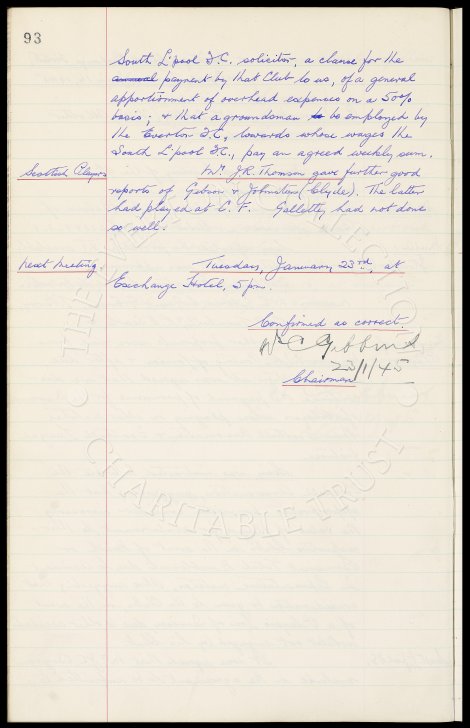 93
South L'pool F.C. solicitor, a clause for the
annual payment by that Club to us, of a general
apportionment of overhead expenses on a 50%
basis; & that a groundsman to be employed by
the Everton F.C., towards whose wages the
South L'pool F.C., pay an agreed weekly sum.
Scottish Players
Mr. J.R. Thomson gave further good
reports of Gibson & Johnston (Clyde). The latter
had played at C.F. Galletly, had not done
so well.
next meeting.
Tuesday, January, 23rd, at
Exchange Hotel, 5pm.
Confirmed as correct.
Wm C Gibbins
23/1/45
Chairman
THE COLLECTION
CHARITABLE TRUST